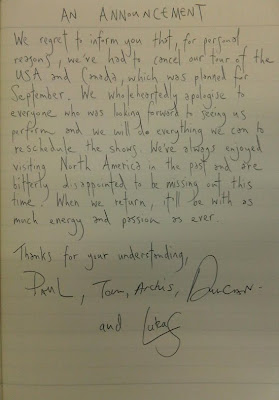 AN ANNOUNCEMENT
We regret to inform you that, for personal
reasons, we've had to cancel our tour of the
USA and Canada, which was planned for
September. We wholeheartedly apologise to
everyone who was looking forward to seeing us
perform and we will do everything we can to
reschedule the shows. We've always enjoyed
visiting North America in the past and are
bitterly disappointed to be missing out this
time. When we return, it'll be with as
much energy and passion as ever.
Thanks for your understanding,
PAUL, Tom, Archis, DUNCAN.
and Lukas